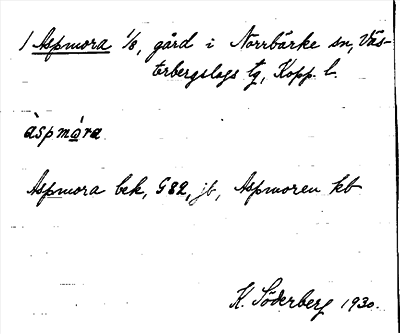 1 Aspmora 1/8, gård i Norrbärke sn, Väs-
terbergslags tg, Kopp. l.
àspmóra
Aspmora bek, G82, jb, Aspmoren kb
K. Söderberg 1930.